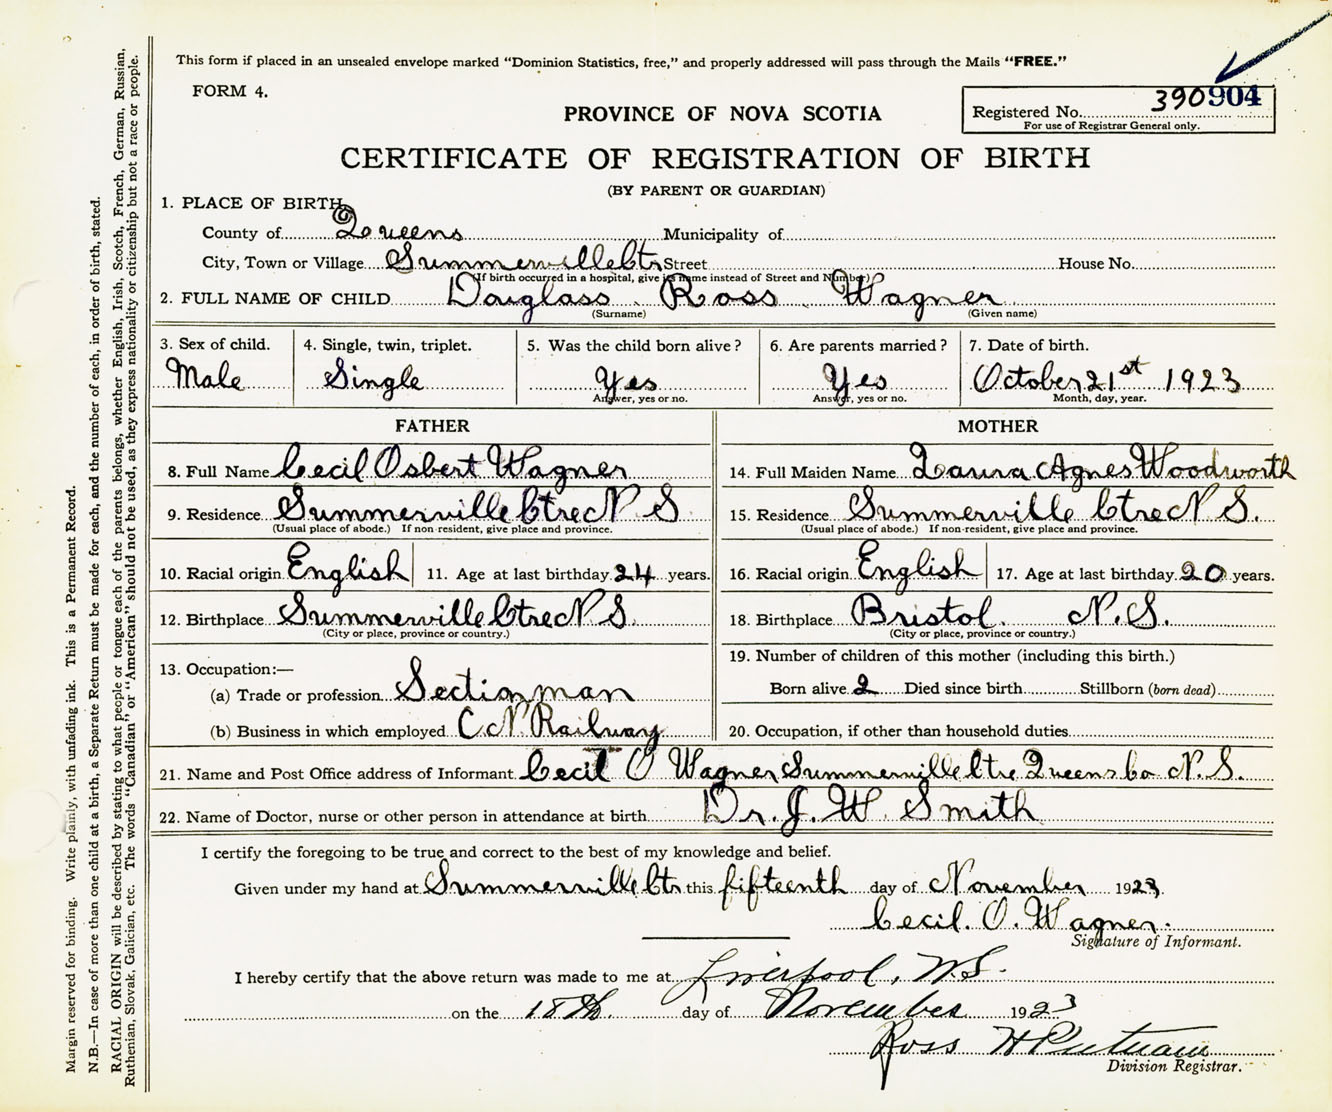 This form if placed in an unsealed envelope marked "Dominion Statistics, free," and properly addressed will pass through the Mails "FREE."
FORM 4.
PROVINCE OF NOVA SCOTIA
Registered No. 390904
For use of Registrar General only.
CERTIFICATE OF REGISTRATION OF BIRTH
(BY PARENT OR GUARDIAN)
1. PLACE OF BIRTH
County of Queens Municipality of
City, Town or Village Summerville Ctr Street House No.
(If birth occurred in a hospital, give its name instead of Street and Number)
2. FULL NAME OF CHILD Douglass Ross Wagner
(Surname) (Given name)
3. Sex of child. 4. Single, twin, triplet. 5. Was the child born alive? 6. Are parents married? 7. Date of birth.
Male Single Yes Yes October 21st 1923
Answer, yes or no. Answer, yes or no. Month, day, year.
FATHER MOTHER
8. Full Name Cecil Osbert Wagner 14. Full Maiden Name Laura Agnes Woodworth
9. Residence Summerville Ctre N S 15. Residence Summerville Ctre N S.
(Usual place of abode.) If non-resident, give place and province. (Usual place of abode.) If non-resident, give place and province.
10. Racial origin English 11. Age at last birthday 24 years. 16. Racial origin English 17. Age at last birthday 20 years.
12. Birthplace Summerville Ctre N S. 18. Birthplace Bristol. N.S.
(City or place, province or country.) (City or place, province or country.)
13. Occupation:— 19. Number of children of this mother (including this birth.)
(a) Trade or profession Sectionman Born alive 2 Died since birth Stillborn (born dead)
(b) Business in which employed C.N. Railway 20. Occupation, if other than household duties
21. Name and Post Office address of Informant Cecil O Wagner Summerville Ctre Queens Co N.S.
22. Name of Doctor, nurse or other person in attendance at birth Dr. J. W. Smith
I certify the foregoing to be true and correct to the best of my knowledge and belief.
Given under my hand at Summerville Ctr this fifteenth day of November 1923.
Cecil. O. Wagner.
Signature of Informant.
I hereby certify that the above return was made to me at Liverpool, N.S.
on the 18th day of November 1923
Ross H Putnam
Division Registrar.
Margin reserved for binding. Write plainly, with unfading ink. This is a Permanent Record.
N.B.—In case of more than one child at a birth, a Separate Return must be made for each, and the number of each, in order of birth, stated.
RACIAL ORIGIN will be described by stating to what people or tongue each of the parents belongs, whether English, Irish, Scotch, French, German, Russian,
Ruthenian, Slovak, Galician, etc. The words "Canadian" or "American" should not be used, as they express nationality or citizenship but not a race or people.